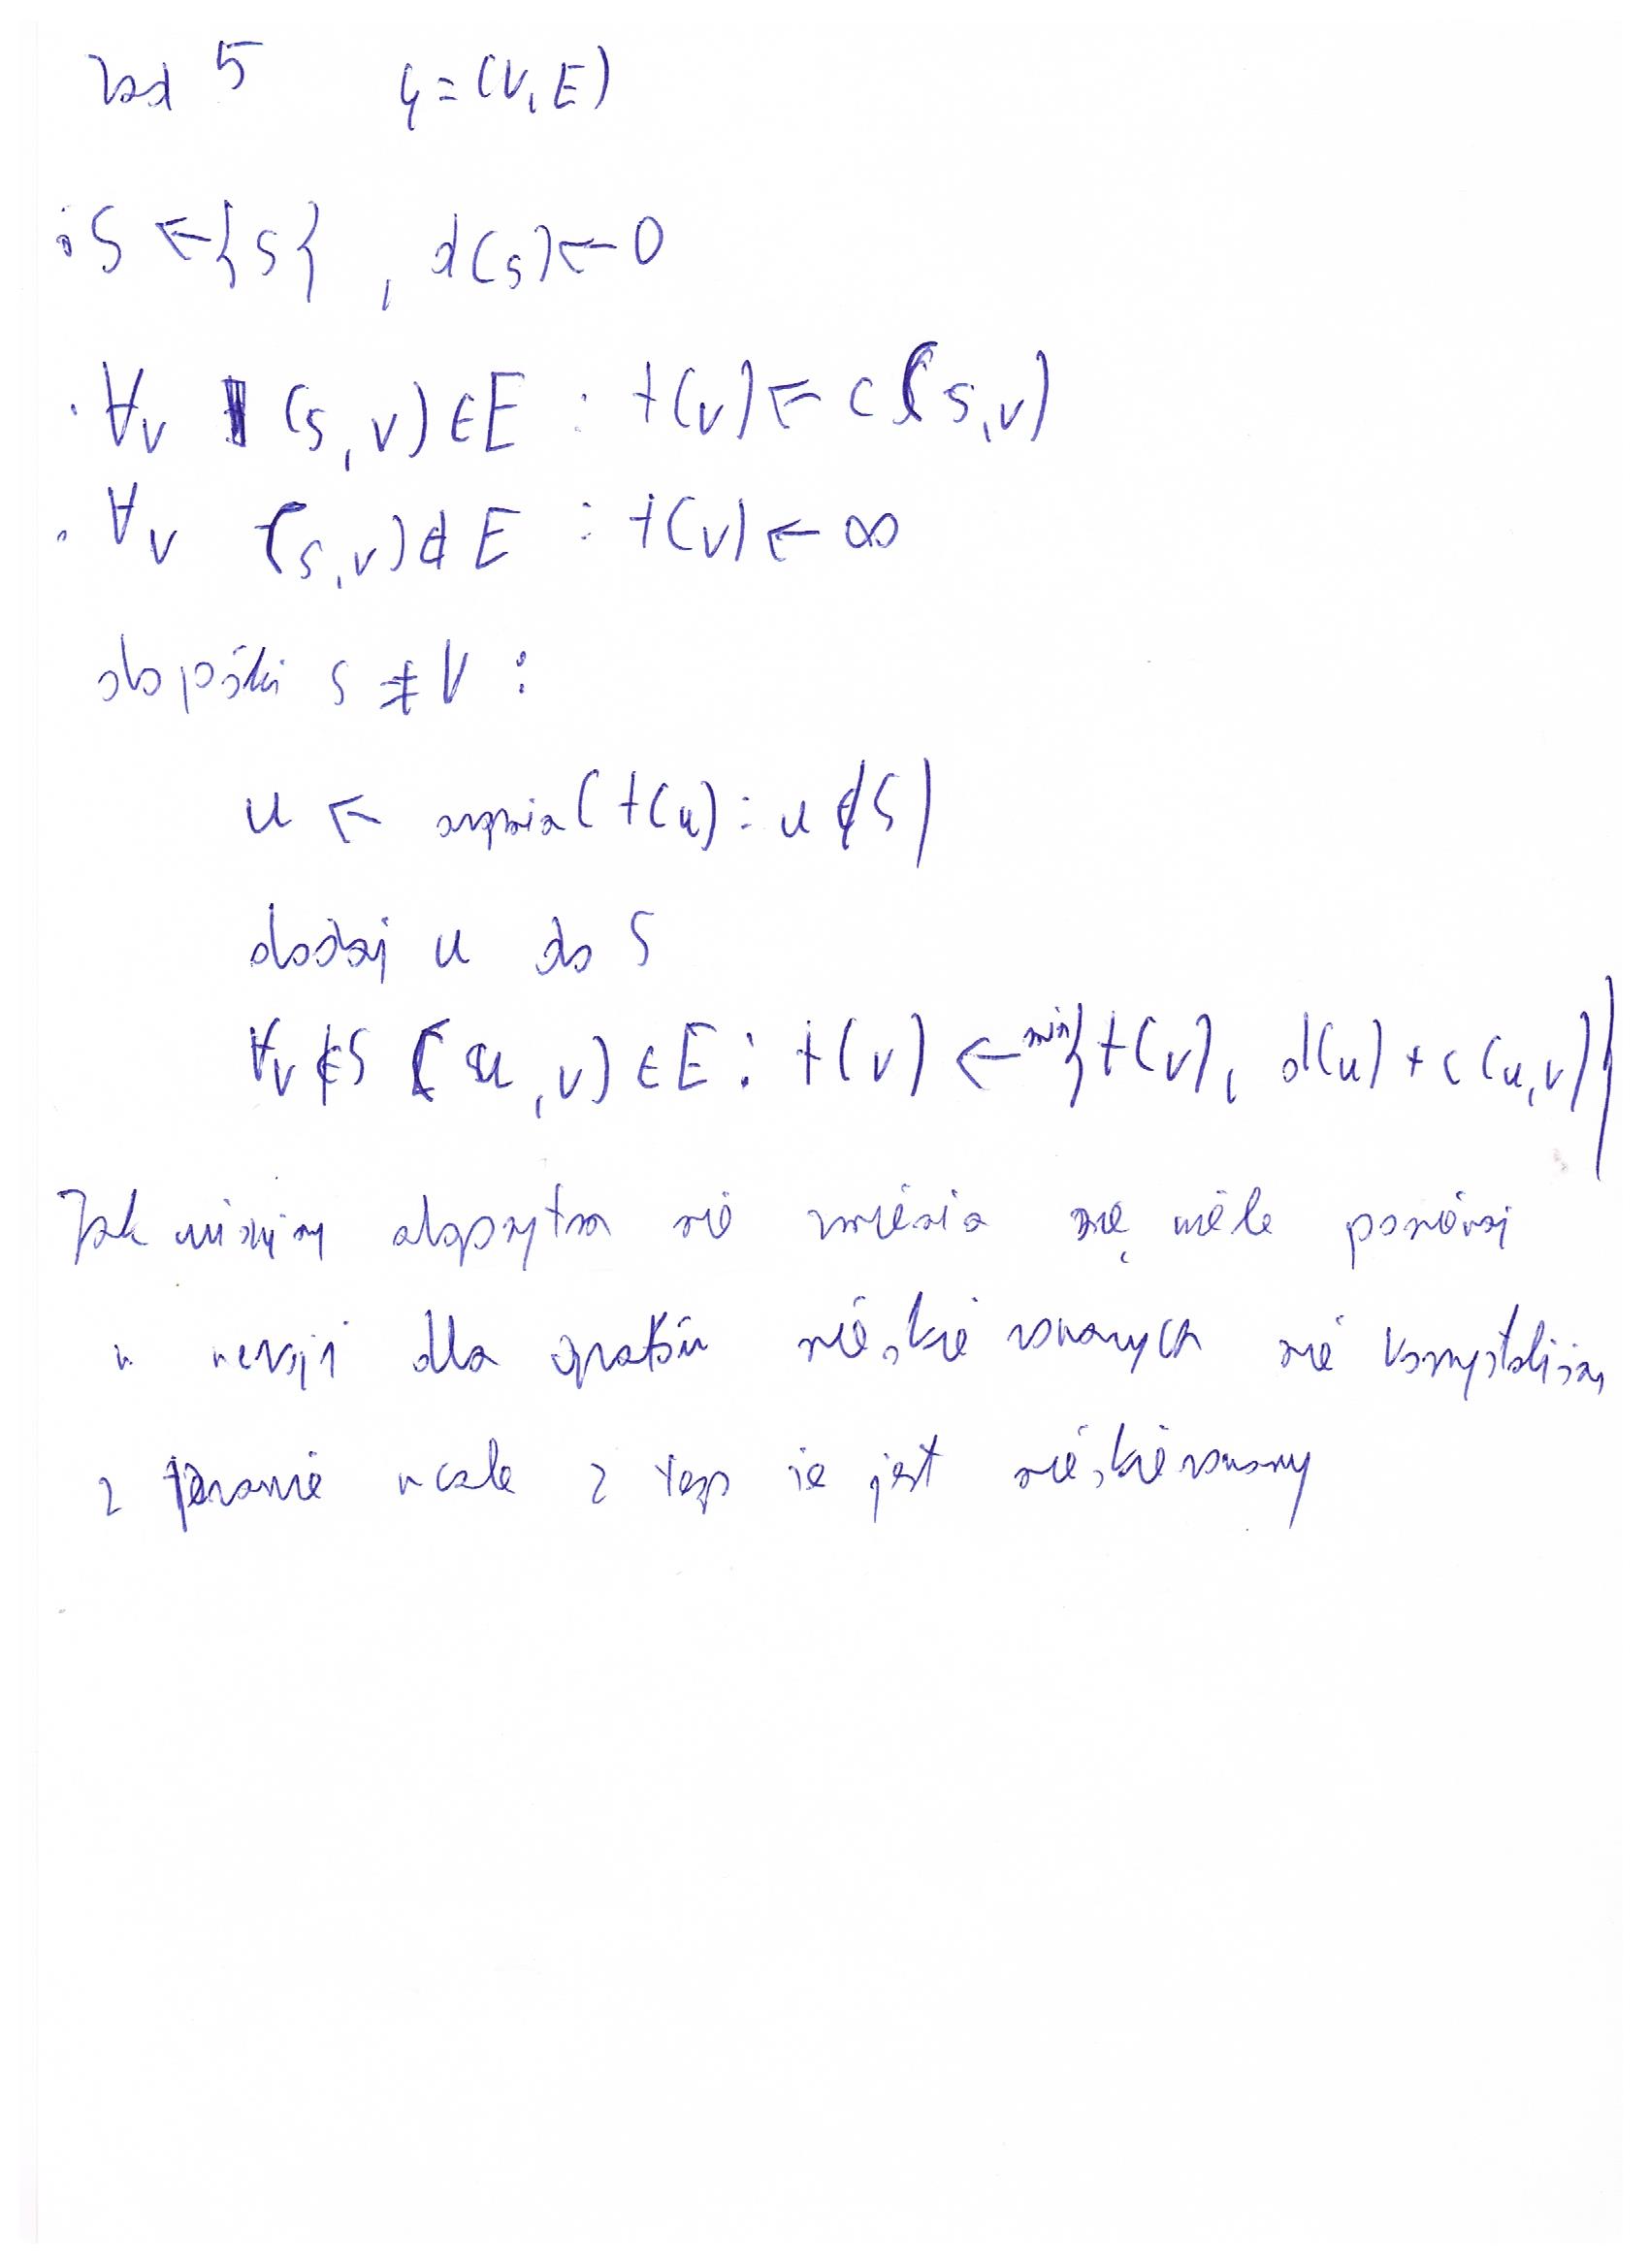 Zad 5 G = (V, E)
• S ← {s}, d(s) ← 0
• ∀v (s, v) ∈ E : t(v) ← c(s, v)
• ∀v (s, v) ∉ E : t(v) ← ∞
dopóki S ≠ V :
u ← argmin(t(u) : u ∉ S)
dodaj u do S
∀v ∉ S (u, v) ∈ E : t(v) ← min{t(v), d(u) + c(u, v)}
Jak widzimy algorytm nie zmienia się wiele ponieważ
w wersji dla grafów nieskierowanych nie korzystaliśmy
z prawie wcale z tego że jest nieskierowany